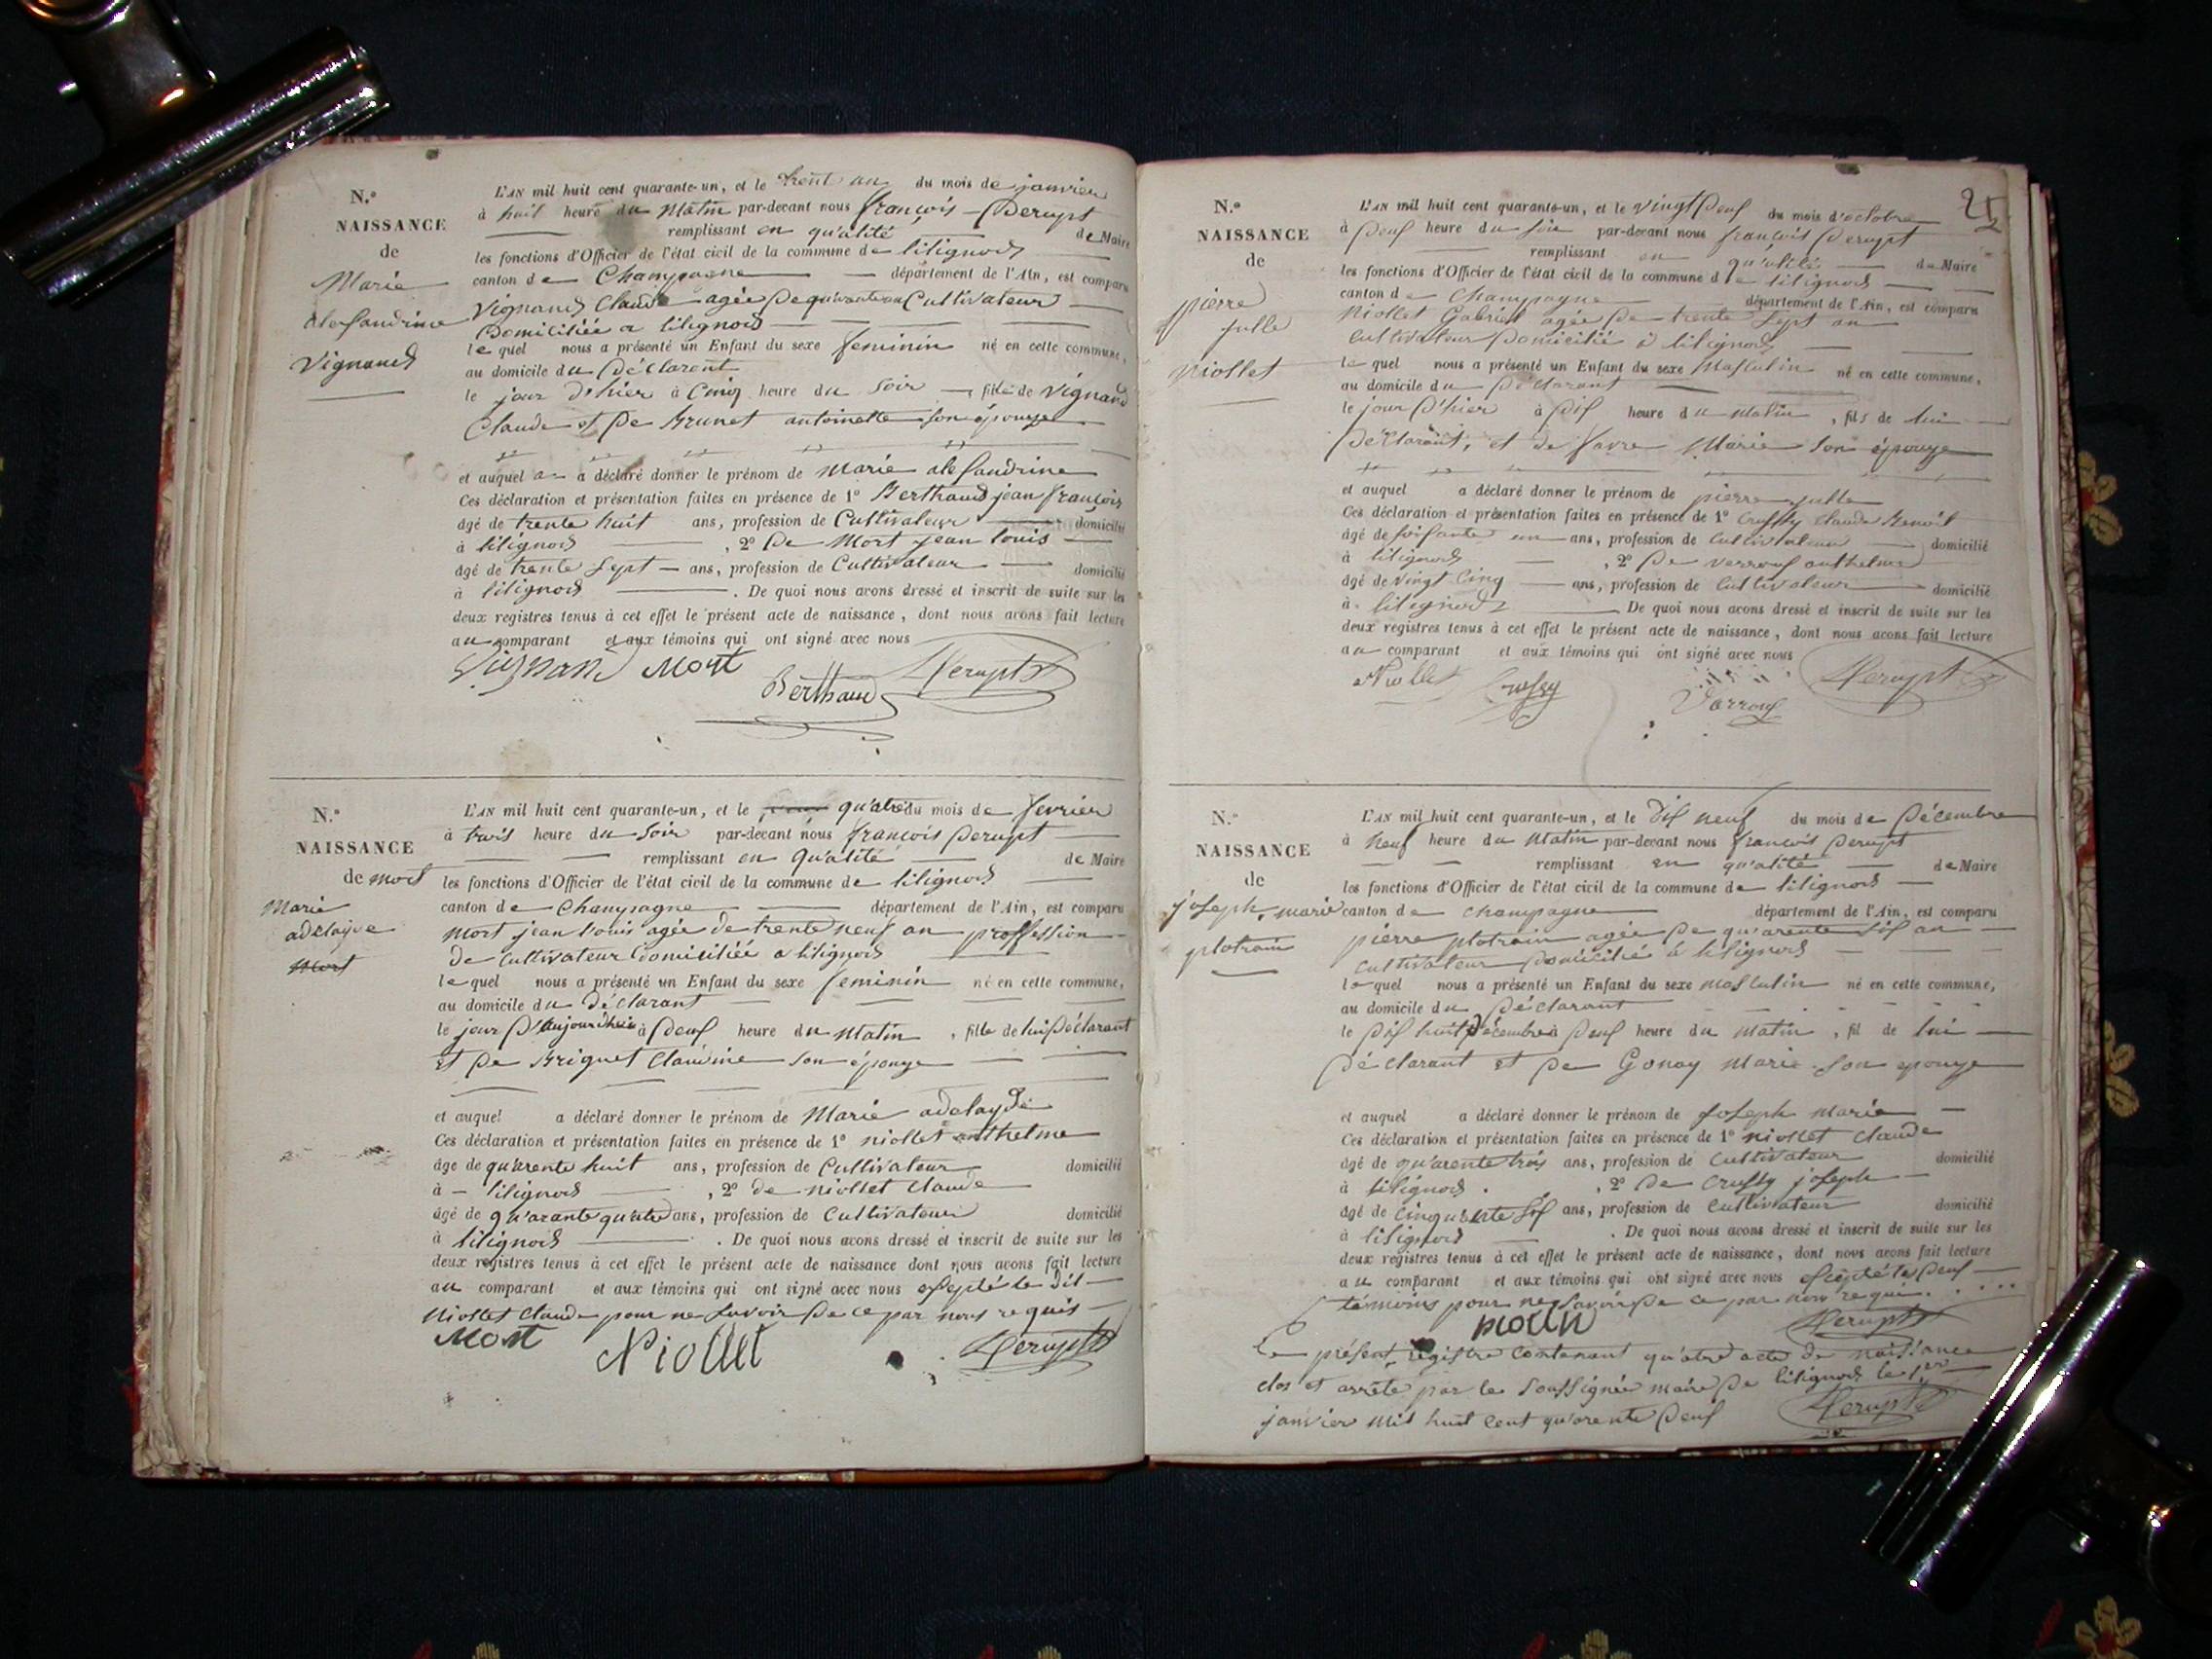 N.º
NAISSANCE
de
Marie
alexandrine
Vignand
L'AN mil huit cent quarante-un, et le trent un du mois de janvier
à huit heure du Matin par-devant nous françois Derupt
remplissant en qu'alité de Maire
les fonctions d'Officier de l'état civil de la commune de lilignod
canton de Champagne département de l'Ain, est comparu
Vignand Claude agée de quarante un Cultivateur
Domiciliée a lilignod
le quel nous a présenté un Enfant du sexe feminin né en cette commune,
au domicile du Déclarent
le jour d'hier à Cinq heure du Soir, fille de Vignand
Claude et De Brunet antoinette son épouse
et auquel a déclaré donner le prénom de Marie alexandrine
Ces déclaration et présentation faites en présence de 1º Berthaud jean françois
âgé de trente huit ans, profession de Cultivateur domicilié
à lilignod, 2º De Mort jean louis
âgé de trente Sept ans, profession de Cultivateur domicilié
à lilignod. De quoi nous avons dressé et inscrit de suite sur les
deux registres tenus à cet effet le présent acte de naissance, dont nous avons fait lecture
au comparant et aux témoins qui ont signé avec nous
Vignand Mort
Berthaud Derupt
N.º
NAISSANCE
de mort
Marie
adelayde
Mort
L'AN mil huit cent quarante-un, et le qu'atre du mois de fevrier
à trois heure du Soir par-devant nous françois Derupt
remplissant en qu'alité de Maire
les fonctions d'Officier de l'état civil de la commune de lilignod
canton de Champagne département de l'Ain, est comparu
mort jean louis agée de trente neuf an proffession
de Cultivateur Domiciliée a lilignod
le quel nous a présenté un Enfant du sexe feminin né en cette commune,
au domicile du Déclarant
le jour D'aujourd'huis à Deux heure du Matin, fille de lui Déclarant
et De Briguet Claudine son épouse
et auquel a déclaré donner le prénom de Marie adelayde
Ces déclaration et présentation faites en présence de 1º niollet anthelme
âgé de qu'arente huit ans, profession de Cultivateur domicilié
à lilignod, 2º de niollet Claude
âgé de qu'arante quatre ans, profession de Cultivateur domicilié
à lilignod. De quoi nous avons dressé et inscrit de suite sur les
deux registres tenus à cet effet le présent acte de naissance dont nous avons fait lecture
au comparant et aux témoins qui ont signé avec nous exsepté le dit
Niollet Claude pour ne savoir De ce par nous requis
Mort Niollet Derupt
25
N.º
NAISSANCE
de
pierre
julle
niollet
L'AN mil huit cent quarante-un, et le vingt Deux du mois d'octobre
à Deux heure du Soir par-devant nous françois Derupt
remplissant en qu'alité de Maire
les fonctions d'Officier de l'état civil de la commune de lilignod
canton de Champagne département de l'Ain, est comparu
Niollet Gabriel agée De trente Sept an
Cultivateur Domicilié à lilignod
le quel nous a présenté un Enfant du sexe Masculin né en cette commune,
au domicile du Déclarant
le jour D'hier à Dix heure du Matin, fils de lui
Déclarant, et de favre Marie son épouse
et auquel a déclaré donner le prénom de pierre julle
Ces déclaration et présentation faites en présence de 1º Crussy Claude Benoit
âgé de soixante un ans, profession de Cultivateur domicilié
à lilignod, 2º De verroux anthelme
âgé de vingt Cinq ans, profession de Cultivateur domicilié
à lilignod. De quoi nous avons dressé et inscrit de suite sur les
deux registres tenus à cet effet le présent acte de naissance, dont nous avons fait lecture
au comparant et aux témoins qui ont signé avec nous
Niollet Crussy Varroux Derupt
N.º
NAISSANCE
de
joseph marie
plotrain
L'AN mil huit cent quarante-un, et le Dix neuf du mois de Décembre
à Neuf heure du Matin par-devant nous françois Derupt
remplissant en qu'alité de Maire
les fonctions d'Officier de l'état civil de la commune de lilignod
canton de Champagne département de l'Ain, est comparu
pierre plotrain agée De qu'arente Six an
Cultivateur Domicilié à lilignod
le quel nous a présenté un Enfant du sexe Masculin né en cette commune,
au domicile du Déclarant
le Dix huit Décembre à Deux heure du Matin, fil de lui
Déclarant et De Gonay Marie son epouse
et auquel a déclaré donner le prénom de joseph marie
Ces déclaration et présentation faites en présence de 1º niollet Claude
âgé de qu'arente trois ans, profession de Cultivateur domicilié
à lilignod, 2º De Crussy joseph
âgé de Cinqu'ente Six ans, profession de Cultivateur domicilié
à lilignod. De quoi nous avons dressé et inscrit de suite sur les
deux registres tenus à cet effet le présent acte de naissance, dont nous avons fait lecture
au comparant et aux témoins qui ont signé avec nous les Deux
témoins pour ne savoir De ce par nous requi
Derupt
Le présent registre Contenant qu'atre acte de naissance
clos et arrêté par le Soussignée maire De lilignod le 1er
janvier Mil huit Cent qu'arente Deux
Derupt